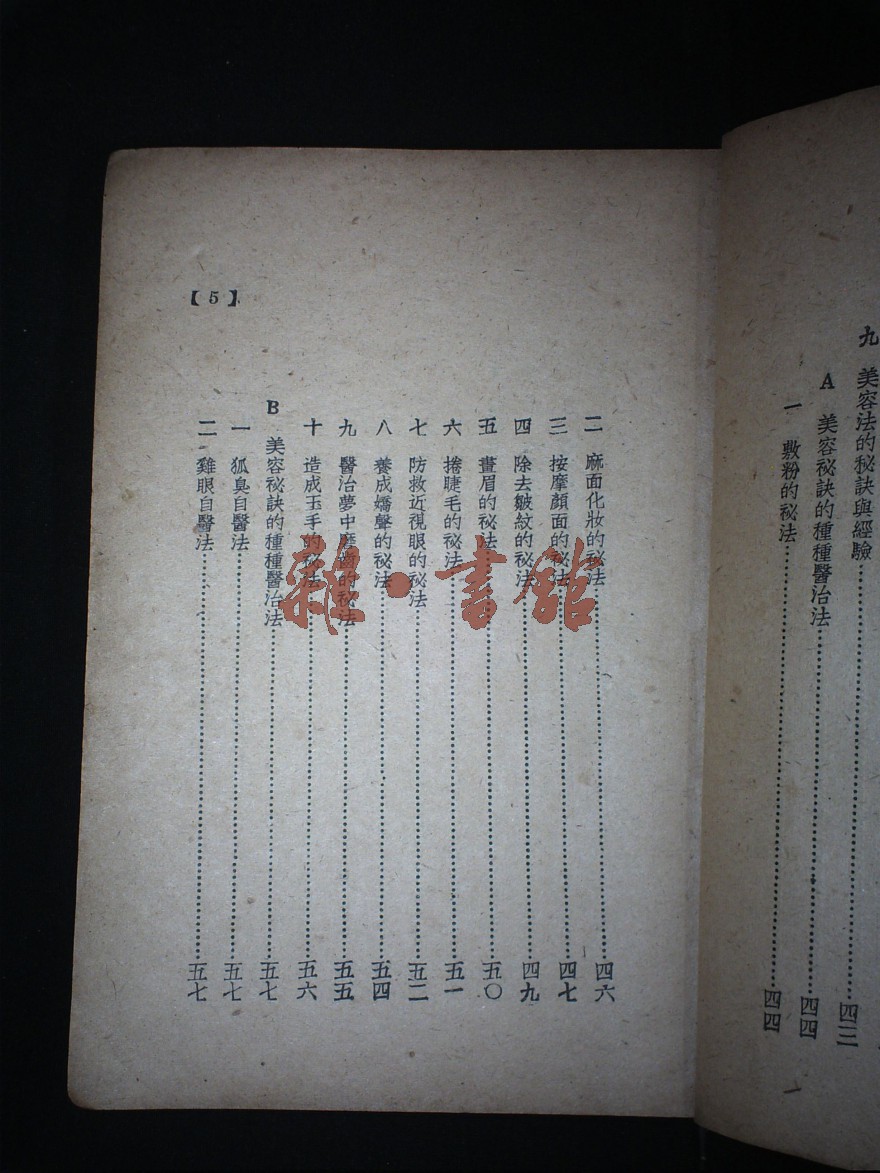 九 美容法的秘訣與經驗……四三
A 美容祕訣的種種醫治法……四四
一 敷粉的祕法……四四
二 麻面化妝的祕法……四六
三 按摩顏面的祕法……四七
四 除去皺紋的祕法……四九
五 畫眉的祕法……五〇
六 捲睫毛的祕法……五一
七 防救近視眼的祕法……五二
八 養成嬌聲的祕法……五四
九 醫治夢中磨齒的祕法……五五
十 造成玉手的祕法……五六
B 美容祕訣的種種醫治法……五七
一 狐臭自醫法……五七
二 雞眼自醫法……五七
【5】
雜·書館